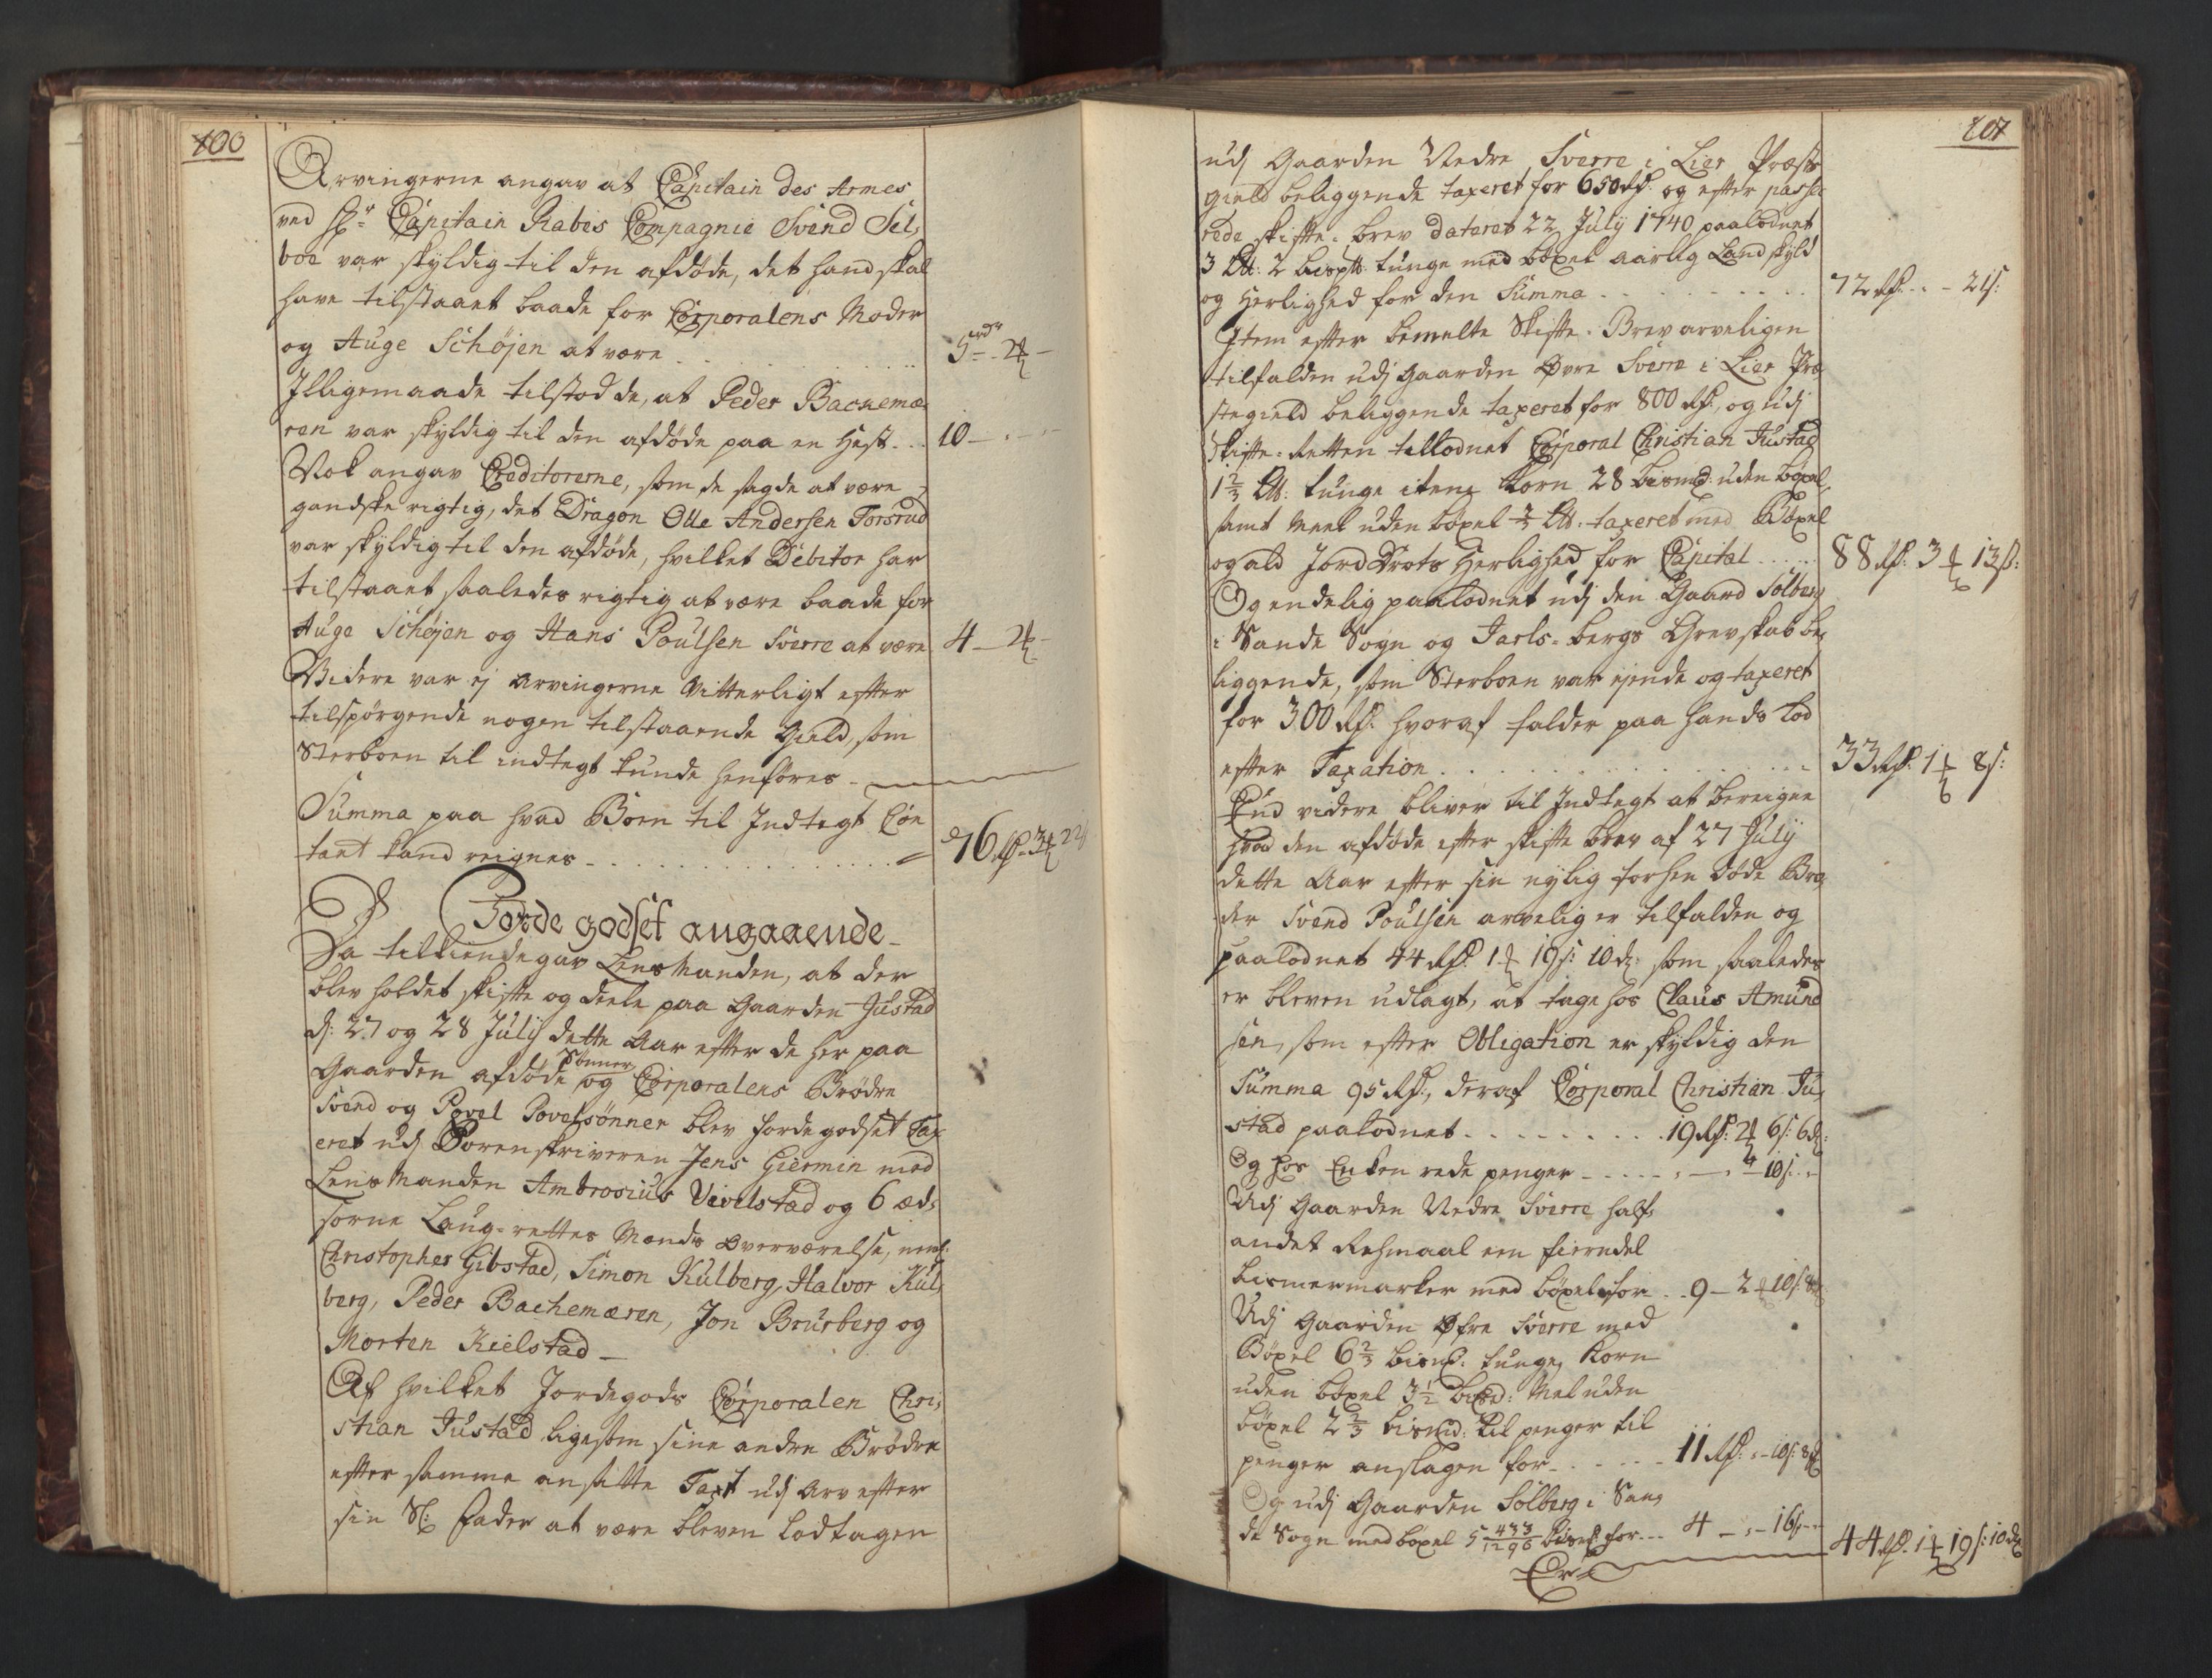 100
Arvingerne angav at Capitain des Armes
ved Hr. Capitain Rabes Compagnie Svend Sel,
boe var skyldig til den afdøde, det hand skal
have tilstaaet baade for Corporalens Moder
og Auge Schøjen at være . . . 5 rdr - 2 ort -
Iligemaade tilstod de, at Peder Bachemæ,
ren var skyldig til den afdøde paa en Hest . . . 10 - . -
Nok angav Creditorerne, som de sagde at være
gandske rigtig, det Dragon Olle Andersen Forsrud
var skyldig til den afdøde, hvilket Debitor har
tilstaaet saaledes rigtig at være baade for
Auge Schøjen og Hans Poulsen Sverre at være 4 - 2 ort -
Videre var ej Arvingerne Vitterligt efter
tilspørgende nogen tilstaaende Gield, som
Sterboen til indtegt kunde henføres -
Summa paa hvad Boen til Indtegt Con
tant kand reignes - . . . 76 Rd - 3 ort 22
Jorde godset angaaende -
Da tilkiendegav LensManden, at der
blev holdet skifte og deele paa Gaarden Justad
d: 27 og 28 Julij dette Aar efter de her paa
Gaarden afdøde Sønner og Corporalens Brødre
Svend og Povel Povelsønner blev Jordegodset Tax
eret udj Sorenskriveren Jens Giermin med
LensManden Ambrosius Vivelstad og 6 æd,
sorne Laug-rettes Mænds Overværelse, neml:
Christopher Gibstad, Simon Kulberg, Halvor Kul,
berg, Peder Bachemæren, Jon Brurberg og
Morten Kielstad -
Af hvilket Jordegods Corporalen Chri,
stian Justad ligesom sine andre Brødre
efter samme ansatte Taxt udj Arv efter
sin Sl: Fader at være bleven Lodtagen
101
udj Gaarden Nedre Sverre i Lier Præste
gield beliggende taxeret for 650 Rd: og efter passe
rede skifte-brev dateret 22 Julij 1740 paalodnet
3 Lb: 2 bispd: tunge med böxel aarlig Landskyld
og Herlighed for den Summa . . . 72 Rd: - - 21 s:
Item efter bemelte Skifte-Brev arveligen
tilfalden udj Gaarden Øvre Sverre i Lier Præ
stegield beliggende taxeret for 800 Rd:, og udj
Skifte-Retten tillodnet Corporal Christian Justad
1 2/3 Lb: tunge item Korn 28 bismd: uden böxel,
samt Meel uden böxel 2/3 Lb: taxeret med Böxel
og ald Jord Drots Herlighed for Capital . . . 88 Rd: 3 ort 13 s:
Og endelig paalodnet udj den Gaard Solberg
i Sande Sogn og Jarls-bergs Grevskab be,
liggende, som Sterboen var ejende og taxeret
for 300 Rd: hvoraf falder paa hands Lod
efter Taxation . . . 33 Rd: 1 ort 8 s:
End videre bliver til Indtegt at bereigne
hvad den afdøde efter skifte brev af 27 Julij
dette Aar efter sin nylig forhen døde Bro,
der Svend Poulsen arvelig er tilfalden og
paalodnet 44 Rd: 1 ort 19 s: 10 d: som saaledes
er bleven udlagt, at tage hos Claus Amund
sen, som efter Obligation er skyldig den
Summa 95 Rd:, deraf Corporal Christian Ju,
stad paalodnet . . . 19 Rd: 2 ort 6 s: 6 d:
Og hos Enken rede penger - . . . - 4 - 10 s: -
Udj Gaarden Nedre Sverre half,
andet Rehmaal een fierndel
bismermarker med böxel for . . 9 - 2 ort 10 s: 8
Udj Gaarden Øfre Sverre med
Böxel 6 2/3 bismd: tunge, Korn
uden böxel 3 1/2 bismd: Mel uden
böxel 2 2/3 bismd: til penger til
penger anslagen for - . . . 11 Rd: - 10 s: 8
Og udj Gaarden Solberg i San,
de Sogn med böxel 5 433/1296 bismd for . . . 4 - - 16 s: - 44 Rd: 1 ort 19 s: 10 d
Er